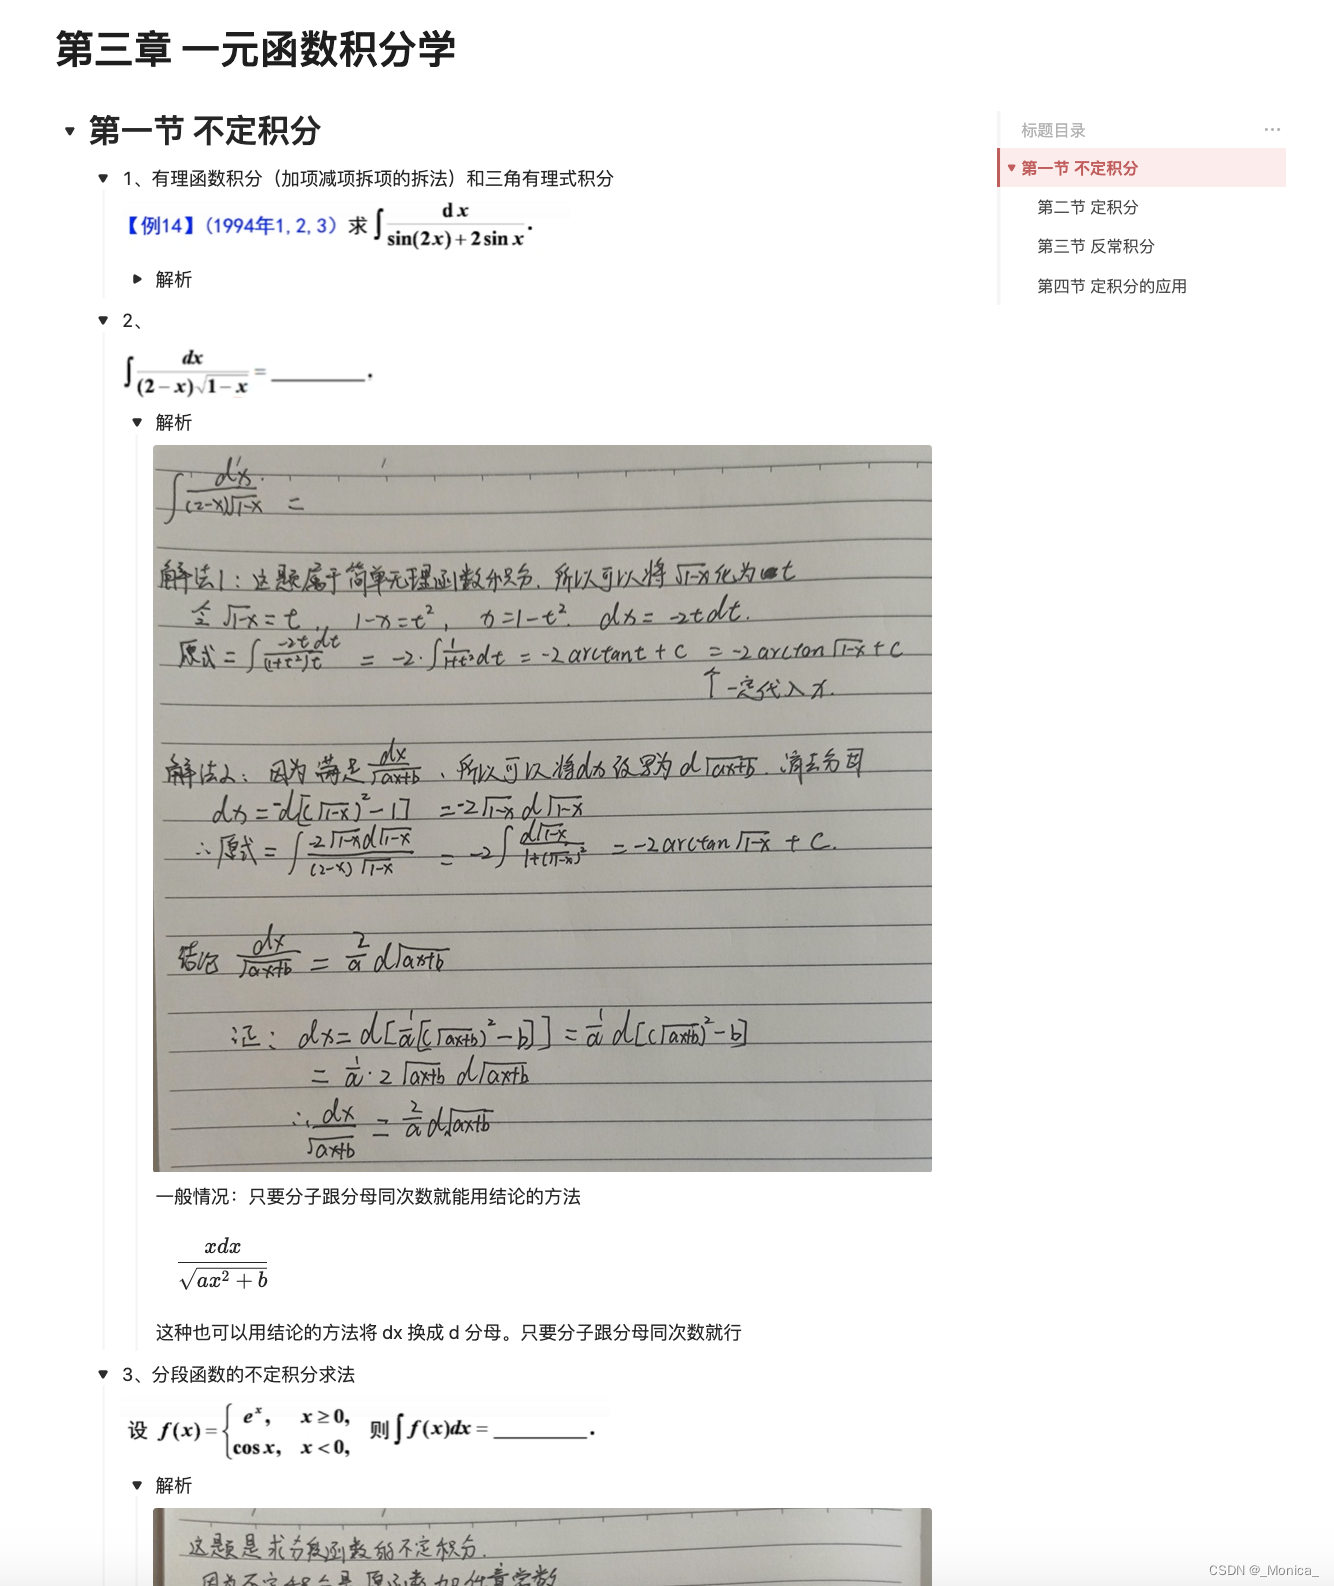 第三章 一元函数积分学
第一节 不定积分
标题目录
第一节 不定积分
第二节 定积分
第三节 反常积分
第四节 定积分的应用
1、有理函数积分（加项减项拆项的拆法）和三角有理式积分
【例14】(1994年1,2,3) 求 ∫ dx / (sin(2x)+2sin x) .
解析
2、
∫ dx / ((2−x)√(1−x)) = ________.
解析
∫ dx / ((2-x)√(1-x)) =
解法1：这题属于简单无理函数积分. 所以可以将 √(1-x) 化为 t
令 √(1-x) = t, 1-x=t², x=1-t². dx = -2tdt.
原式 = ∫ -2tdt / ((1+t²)t) = -2·∫ 1/(1+t²) dt = -2arctant + C = -2arctan√(1-x) + C
↑ 一定代入x.
解法2：因为满足 dx/√(ax+b) 、所以可以将dx改写为 d√(ax+b) . 消去分母
dx = -d[(√(1-x))²-1] = -2√(1-x) d√(1-x)
∴原式 = ∫ -2√(1-x)d√(1-x) / ((2-x)√(1-x)) = -2∫ d√(1-x) / (1+(√(1-x))²) = -2arctan√(1-x) + C.
结论 dx/√(ax+b) = 2/a d√(ax+b)
证： dx = d[1/a[(√(ax+b))²-b]] = 1/a d[(√(ax+b))²-b]
= 1/a·2√(ax+b) d√(ax+b)
∴ dx/√(ax+b) = 2/a d√(ax+b)
一般情况：只要分子跟分母同次数就能用结论的方法
xdx / √(ax² + b)
这种也可以用结论的方法将 dx 换成 d 分母。只要分子跟分母同次数就行
3、分段函数的不定积分求法
设 f(x) = { eˣ, x ≥ 0, cos x, x < 0, 则 ∫ f(x)dx = ________.
解析
这题是求分段函数的不定积分.
因为不定积分是原函数加任意常数
CSDN @_Monica_